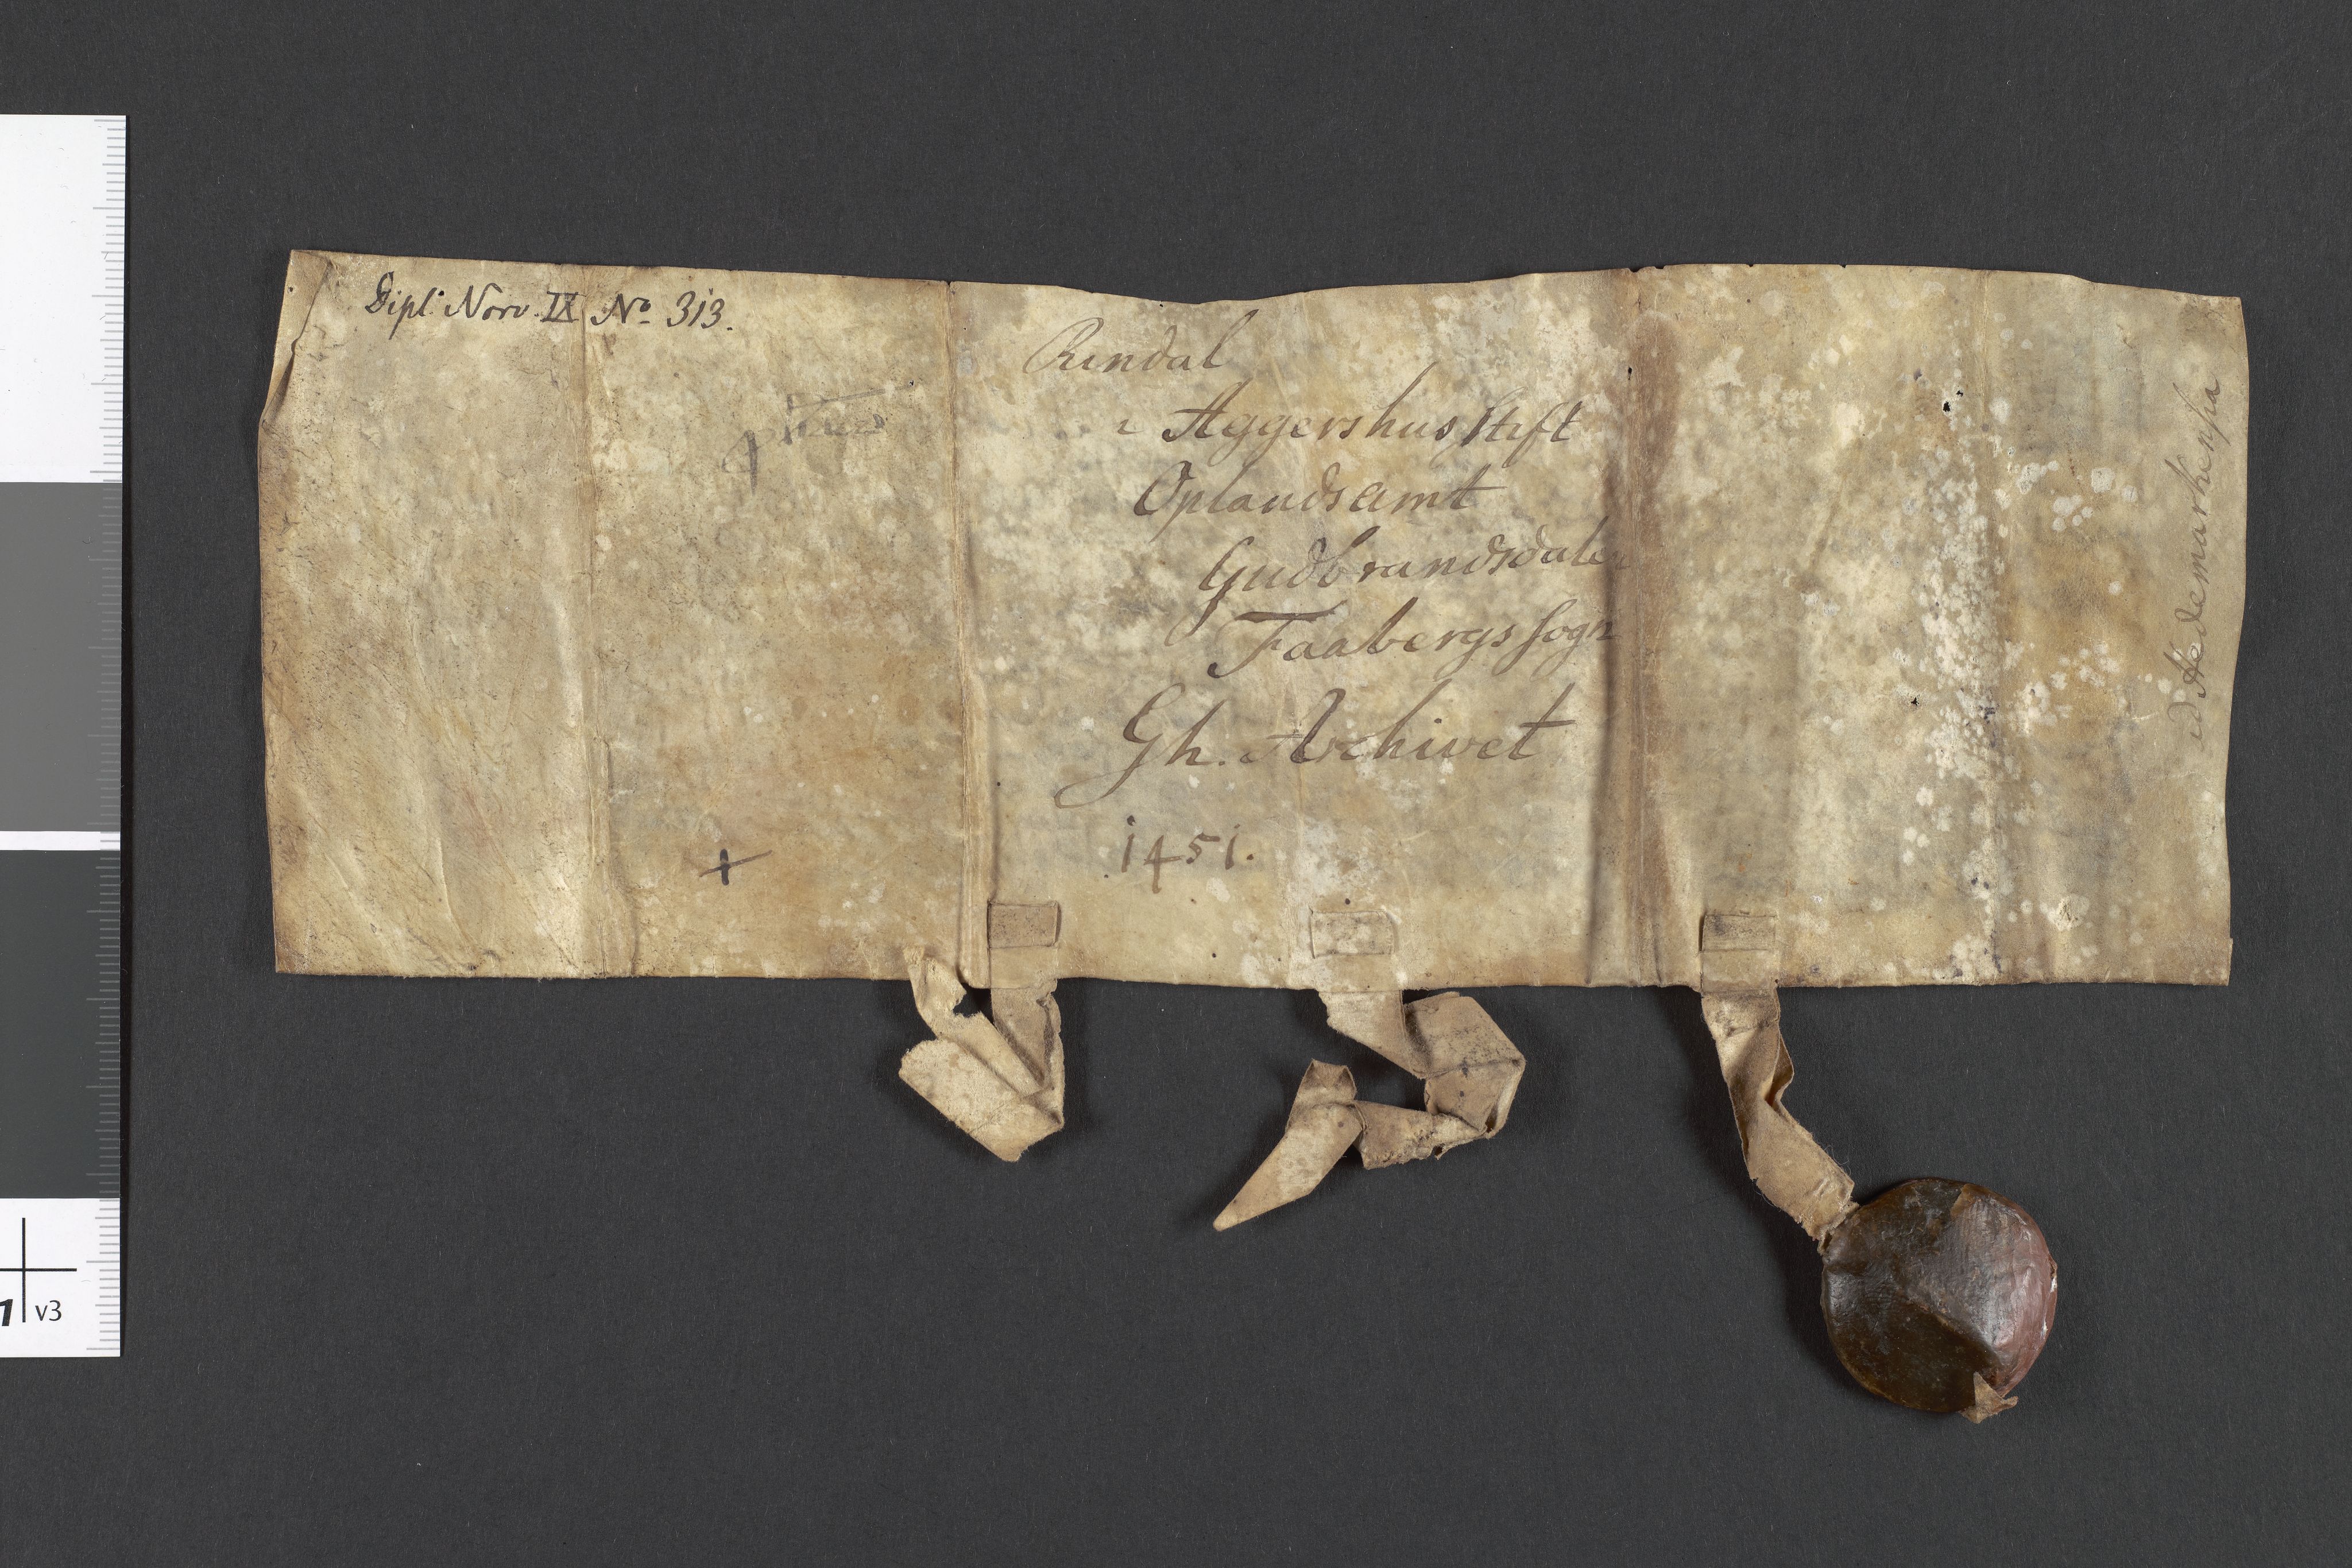 Dipl. Norv. IX No. 313.
Rindal
i Aggershus Stift
Oplands amt
Gudbrandsdalen
Faabergs sogn
Gh. Archivet
1451.
+
v3